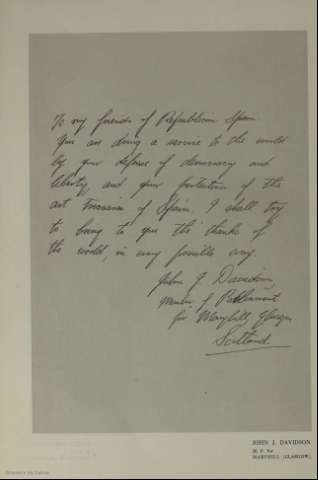 To my friends of Republican Spain
You are doing a service to the world
by your defense of democracy and
liberty, and your protection of the
art Treasures of Spain. I shall try
to bring to you the thanks of
the world, in every possible way.
John J. Davidson,
Member of Parliament
for Maryhill, Glasgow
Scotland.
JOHN J. DAVIDSON
M. P. for
MARYHILL (GLASGOW)